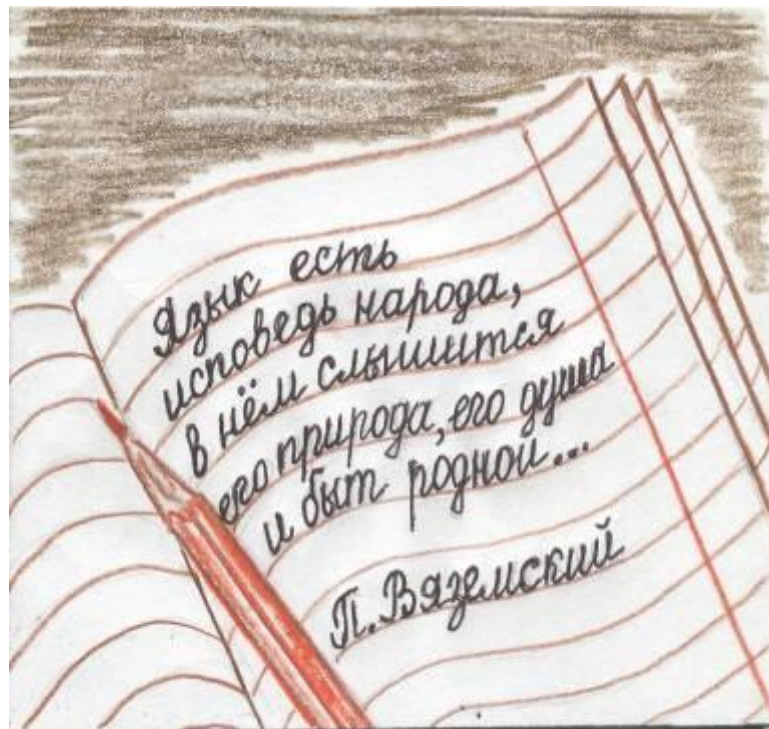 Язык есть
исповедь народа,
в нём слышится
его природа, его душа
и быт родной...
П. Вяземский